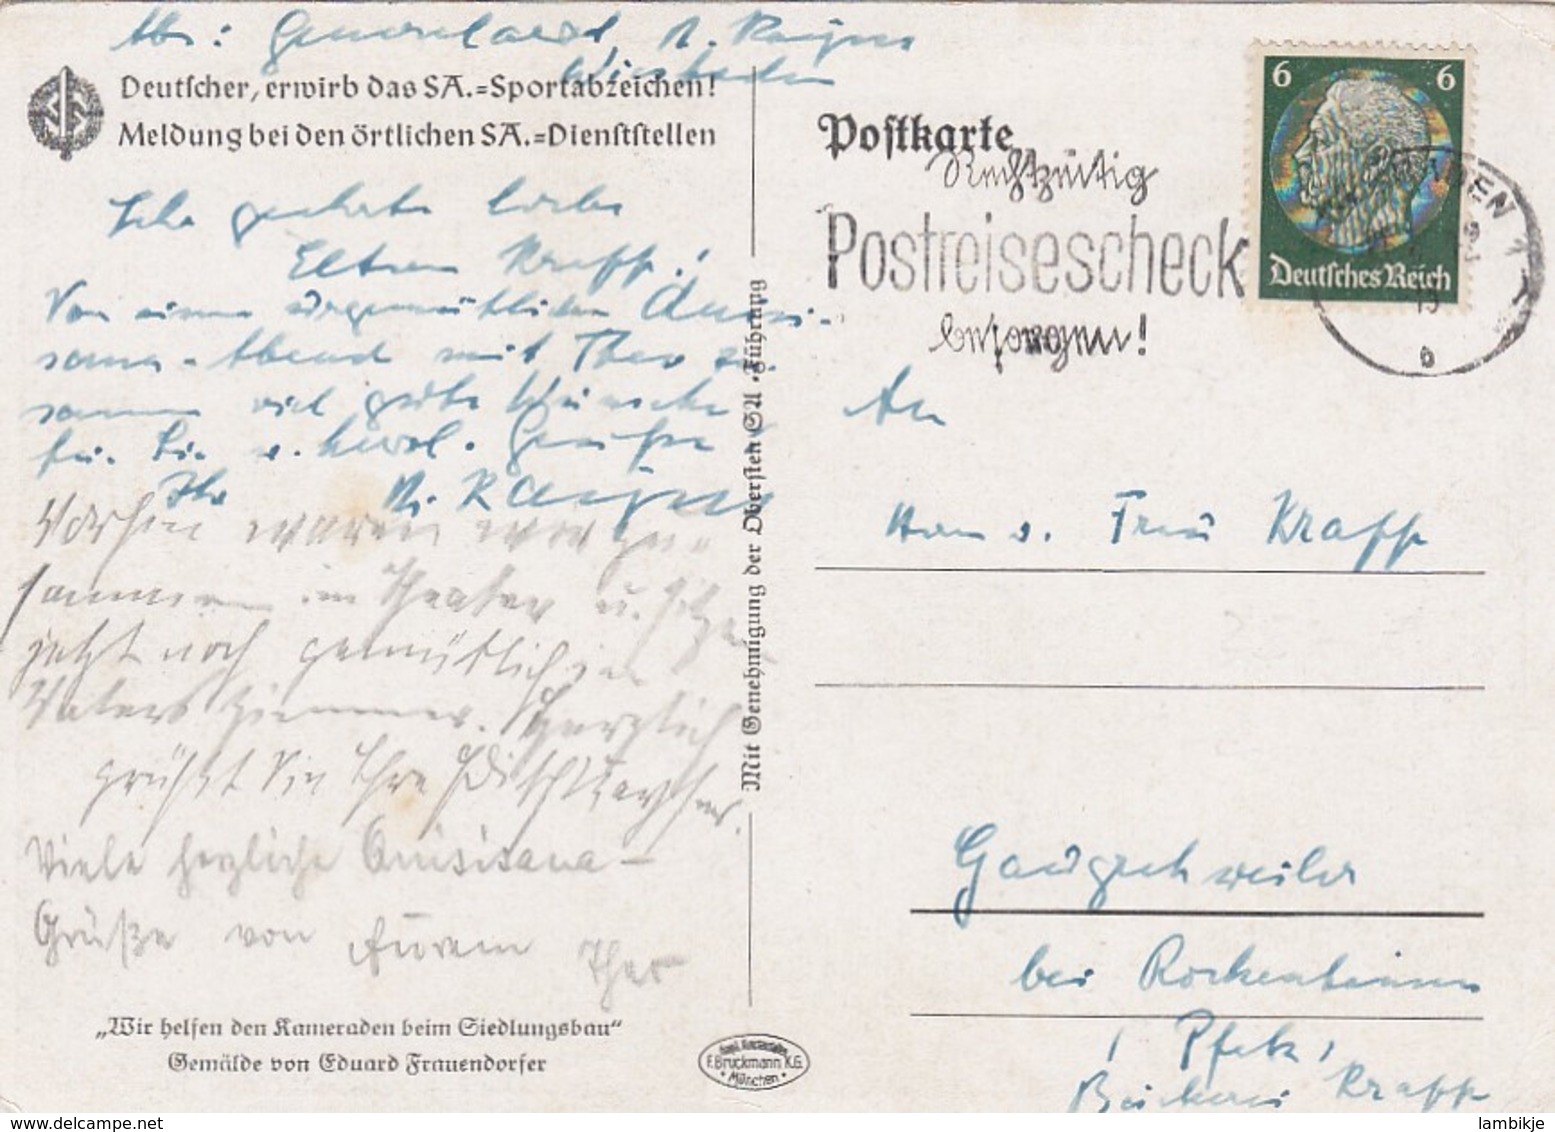 Abs: Generalarzt
Wiesbaden
Deutscher, erwirb das SA.=Sportabzeichen!
Meldung bei den örtlichen SA.=Dienststellen
Sehr geehrte liebe
Eltern Krapp!
Von einem urgemütlichen
Abend mit Theo zu-
sammen viel gute Wünsche
für Sie u. herzl. Grüße
Ihr
Vorhin waren wir zu-
sammen im Theater u. sitzen
jetzt noch gemütlich in
Vaters Zimmer. Herzlich
grüßt Sie Ihre
Viele herzliche
Grüße von Eurem Theo
„Wir helfen den Kameraden beim Siedlungsbau“
Gemälde von Eduard Frauendorfer
Mit Genehmigung der Obersten SA.-Führung
F. Bruckmann K.G.
München
Postkarte
Rechtzeitig
Postreisescheck
besorgen!
6 6
Deutsches Reich
b
An
Herrn u. Frau Krapp
Gaugrehweiler
bei Rockenhausen
/ Pfalz /
Bäckerei Krapp
lambikje